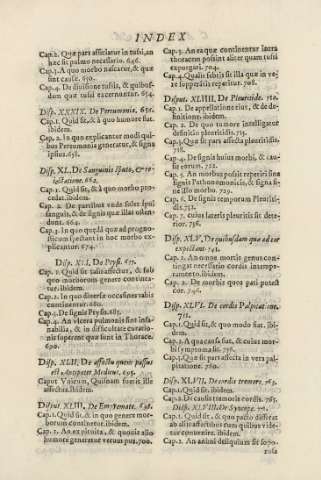 INDEX
Cap.2. Quæ pars afficiatur in tussi, an
hæc sit pulmo necessario. 646.
Cap.3. A quo morbo nascatur, & quæ
sint causæ. 650.
Cap.4. De divisione tussis, & quibus-
dam quæ tussi excernuntur. 654.
Disp. XXXIX. De Peripneumonia. 656.
Cap.1. Quid sit, & à quo humore fiat.
ibidem.
Cap. 2. In quo explicantur modi qui-
bus Peripneumonia generatur, & signa
ipsius. 658.
Disp. XL. De Sanguinis sputo, & re-
iectatione. 662.
Cap. 1. Quid sit, & à quo morbo pro-
cedat. ibidem.
Cap. 2. De partibus unde solet spui
sanguis, & de signis quæ illas osten-
dunt. 664.
Cap. 3. In quo quædam ad prognosti-
cum spectantia in hoc morbo ex-
plicantur. 674.
Disp. XLI. De Ptysi. 677.
Cap. 1. Quid sit tabis affectus, & sub
quo morborum genere contineatur.
ibidem.
Cap.2. In quo diversæ occasiones tabis
continentur. 680.
Cap.3. De signis Ptysis. 685.
Cap.4. An ulcera pulmonis sint insa-
nabilia, & in difficultate curatio-
nis superent quæ sunt in Thorace.
690.
Disp. XLII. De affectu quem passus
est Antipater Medicus. 695.
Caput Unicum, Quisnam fuerit ille
affectus. ibidem.
Disput. XLIII. De Empyemate. 698.
Cap. 1. Quid sit, & in quo genere mor-
borum contineatur. ibidem.
Cap. 2. An ex pituita, & quouis alio
humore generetur verum pus. 700.
Cap. 3. An ea quæ continentur intra
thoracem possint aliter quam tussi
expurgari. 704.
Cap.4. Qualis febris sit illa quæ in
Cap. 5.
Disput. XLIIII. De Pleuritide. 710.
Cap. 1. De appellatione eius, & de de-
finitione. ibidem.
Cap. 2. De quo tumore intelligatur
definitio pleuritidis. 715.
Cap.3. Quæ sit pars affecta pleuritidis.
718.
Cap. 4. De signis huius morbi, & cau-
sis eorum. 722.
Cap. 5. An morbus possit reperiri sine
signis Pathonomonicis, & signa si-
ne illo morbo. 729.
Cap. 6. De signis temporum Pleuriti-
dis. 732.
Cap. 7. Cuius lateris pleuritis sit dete-
rior. 736.
Disp. XLV. De quibusdam quæ ad cor
expectant. 743.
Cap. 1. An omne mortis genus con-
tingat necessario cordis intempe-
ramento. ibidem.
Cap. 2. De morbis quos pati potest
cor. 746.
Disp. XLVI. De cordis Palpitatione.
752.
Cap.1. Quid sit, & quo modo fiat. ibi-
dem.
Cap.2. A qua causa fiat, & cuius mor-
bi symptoma sit. 756.
Cap.3. Quæ sit pars affecta in vera pal-
pitatione. 760.
Disp. XLVII. De cordis tremore. 763.
Cap.1. Quid sit. ibidem.
Cap. 2. De causa tremoris cordis. 765.
Disp. XLVIII. De Syncope. 767.
Cap.1. Quid sit, & quo pacto differat
ab alijs affectibus cum quibus vide-
tur convenire. ibidem.
Cap.2. An animi deliquium sit so 70.